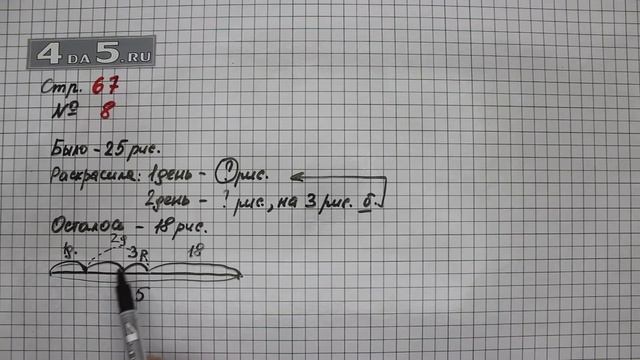 4 DA 5.RU
Стр. 67
№ 8
Было - 25 рис.
Раскрасила: 1 день - ? рис.
2 день - ? рис., на 3 рис. б.
Осталось - 18 рис.
1д. 2д 3р 18
5